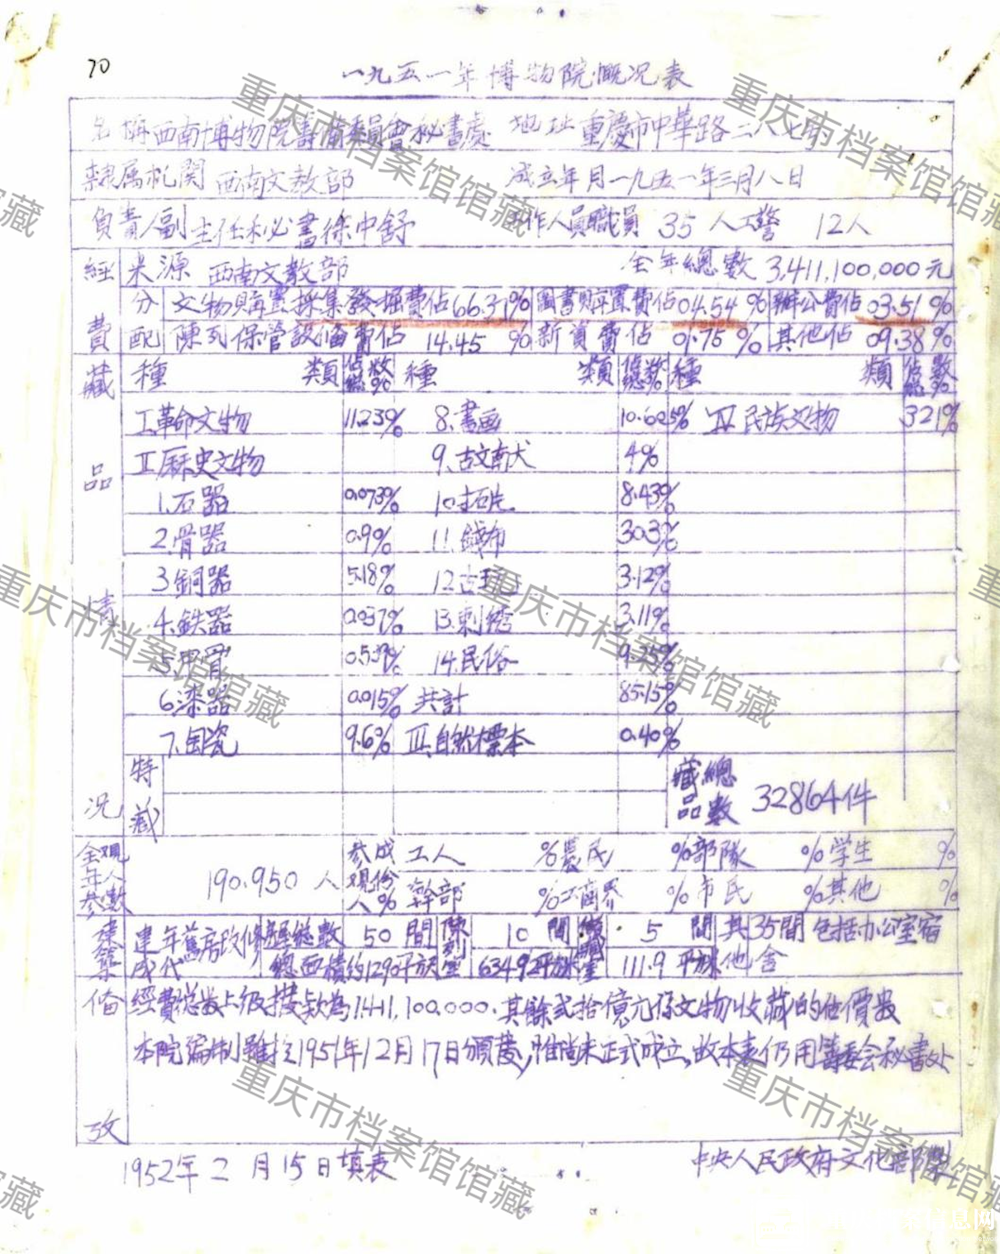 70
一九五一年博物院概况表
名稱 西南博物院籌備委員會秘書處 地址 重慶市中華路二八七
隸属机関 西南文教部 成立年月 一九五一年三月八日
負責人 副主任秘書徐中舒 工作人員職員 35 人 工警 12人
經費 来源 西南文教部 全年總數 3,411,100,000元
分配 文物購置採集發掘費佔66.31% 圖書購置費佔04.54% 辦公費佔03.51%
陳列保管設備費佔 14.45 % 新資費佔 01.75 % 其他佔 09.38%
藏品情况 種類 佔總數% 種類 佔總數% 種類 佔總數%
I.革命文物 11.23% 8.書画 10.605% IV 民族文物 3.21%
II.厤史文物 9.古文献 4%
1.石器 0.073% 10.拓片 8.43%
2.骨器 0.9% 11.錢布 30.3%
3.銅器 5.18% 12.古 3.12%
4.鉄器 0.037% 13.刺綉 3.11%
5.甲骨 14.民俗
6.漆器 0.015% 共計 85.15%
7.陶瓷 9.6% III.自然標本 0.40%
特藏 藏品總數 32864件
全年参觀人數 190.950 人 参觀人成份% 工人 % 農民 % 部隊 % 学生 %
幹部 % 工商界 % 市民 % 其他 %
建築 建成年代 舊房改修 總數 50 間 陳列室 10 間 5 間 其他 35間 包括办公室宿舍
總面積約1290平方 634.9平方 111.9 平方
备攷 經費總數上級撥欵為1.411,100.000.其餘弍拾億元係文物收藏的估價数
本院編制雖於1951年12月17日頒發,惟尚未正式成立,故本表仍用籌委会秘書处
1952年 2 月 15日填表 中央人民政府文化部製
重庆市档案馆馆藏
重庆市档案馆馆藏
重庆市档案馆馆藏
重庆市档案馆馆藏
重庆市档案馆馆藏
重庆市档案馆馆藏